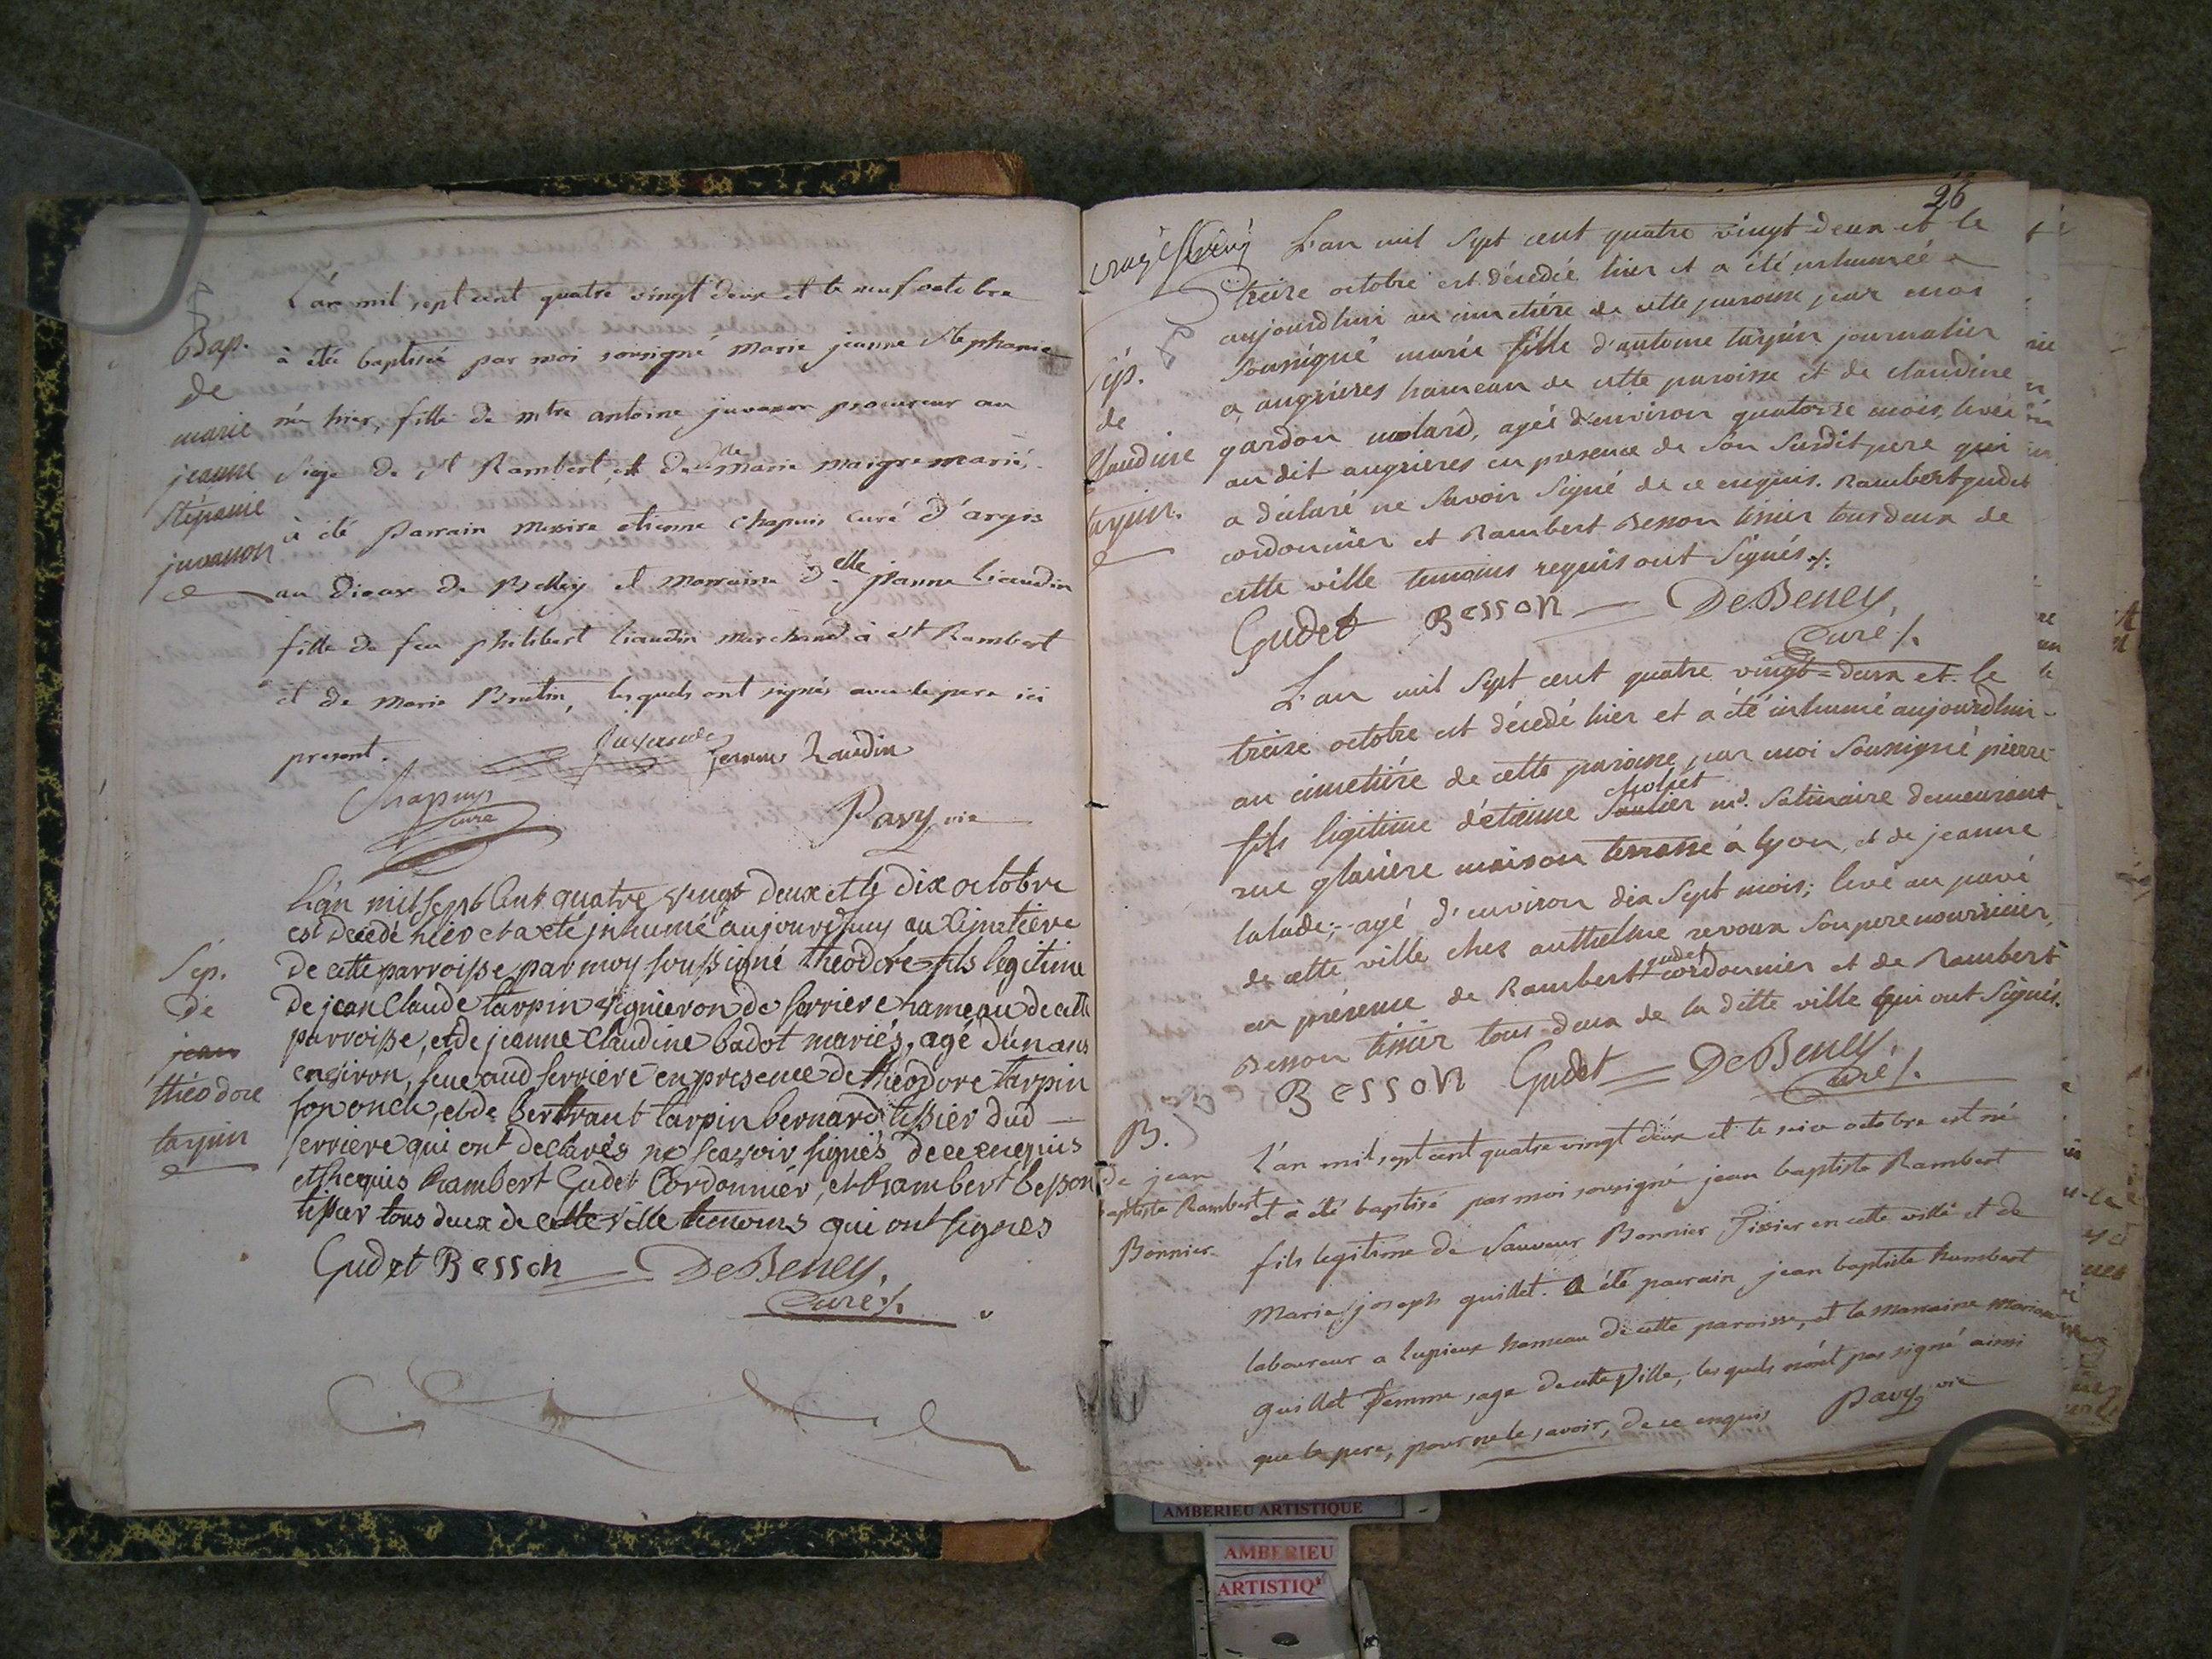 Bap.
de
marie
jeanne
Stépanie
juvanon
L'an mil sept cent quatre vingt deux et le neuf octobre
à été baptisée par moi sousigné Marie jeanne Stephanie
née hier, fille de mtre antoine juvanon procureur au
siege de st Rambert, et de dlle Marie maigre mariés.
à été Parrain Messire etienne Chapuis Curé d'argis
au dioax de Belley et Marraine Delle jeanne liaudin
fille de feu philibert liaudin marchand à st Rambert
et de Marie Brutin, lesquels ont signés avec le pere ici
present.
jeanne Liaudin
Chapuys
curé
Pavy vic
Sép.
de
jean
théodore
tarpin
L'an mil sept Cent quatre vingt deux et le dix octobre
est decedé hier et a eté jnhumé aujourdhuy au Cimetiere
de cette parroisse par moy soussigné theodore fils legitime
de jean Claude tarpin vigneron de serriere hameau de cette
parroisse, et de jeanne Claudine badot mariés, agé d'un ans
environ, levé aud serriere en presence de theodore tarpin
son oncle, et de bertrant tarpin bernard tissier dud
serriere qui ont declarés ne scavoir signés de ce enequis
et requis Rambert Gudet Cordonnier, et Rambert besson
tissier tous deux de cette ville temoins qui ont signes
Gudet Besson DeBeney,
Curé /.
26
Sép.
de
Claudine
tarpin.
L'an mil sept cent quatre vingt deux et le
treize octobre est décedée hier et a été inhumée
aujourdhui au cimetiére de cette paroisse par moi
soussigné marie fille d'antoine tarpin journalier
a angrieres hameau de cette paroisse et de claudine
gardon molard, agée d'environ quatorze mois, levée
au dit angrieres en presence de son susdit pere qui
a déclaré ne savoir signé de ce enquis. Rambert gudet
cordonnier et Rambert Besson tissier tous deux de
cette ville temoins requis ont signés /.
Gudet Besson DeBeney,
Curé /.
L'an mil sept cent quatre vingt=deux et le
treize octobre est décedé hier et a été inhumé aujourdhui
au cimetiére de cette paroisse par moi soussigné pierre
cholet
fils ligitime d'étienne Saulier md. Satinaire demeurant
rue glaciere maison terrasse à lyon, et de jeanne
lalude; agé d'environ dix sept mois; levé au pavé
de cette ville chez anthelme revoux son pere nourricier,
gudet
en présence de Rambert cordonnier et de Rambert
Besson tissier tous deux de la ditte ville qui ont signés.
Besson Gudet DeBeney,
Curé /.
B.
de jean
baptiste Rambert
Bonnier
L'an mil sept cent quatre vingt deux et le seize octobre est né
et à été baptisé par moi sousigné jean baptiste Rambert
fils legitime de Sauveur Bonnier Tissier en cette ville et de
Marie joseph guillet. a été parrain jean baptiste humbert
laboureur a lupieux hameau de cette paroisse, et la marraine mariane
guillet femme sage de cette Ville, lesquels n'ont pas signé ainsi
que le pere, pour ne le savoir, de ce enquis
Pavy vic
AMBERIEU ARTISTIQUE
AMBERIEU
ARTISTIQ